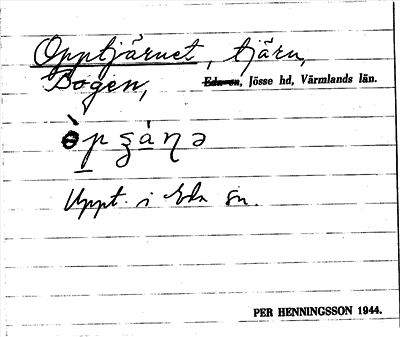 Opptjärnet, tjärn,
Bogen, Eda sn, Jösse hd, Värmlands län.
Uppt. i Eda sn.
PER HENNINGSSON 1944.